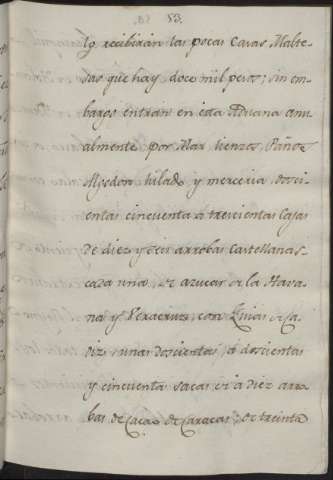 53.
to recibirán las pocas Casas Malte-
sas que hay doce mil pesos; sin em-
bargo entran en esta Aduana anu-
almente por Mar lienzos, Paños
Algodon hilado y merceria Dosci-
entas cincuenta á trescientas Cajas
de diez y seis arrobas Castellanas
cada una, de azucar de la Hava-
na y Veracruz, con Guias de Ca-
diz, unas doscientas, á doscientas
y cincuenta sacas de á diez arro-
bas de Cacao de Caracas, de treinta